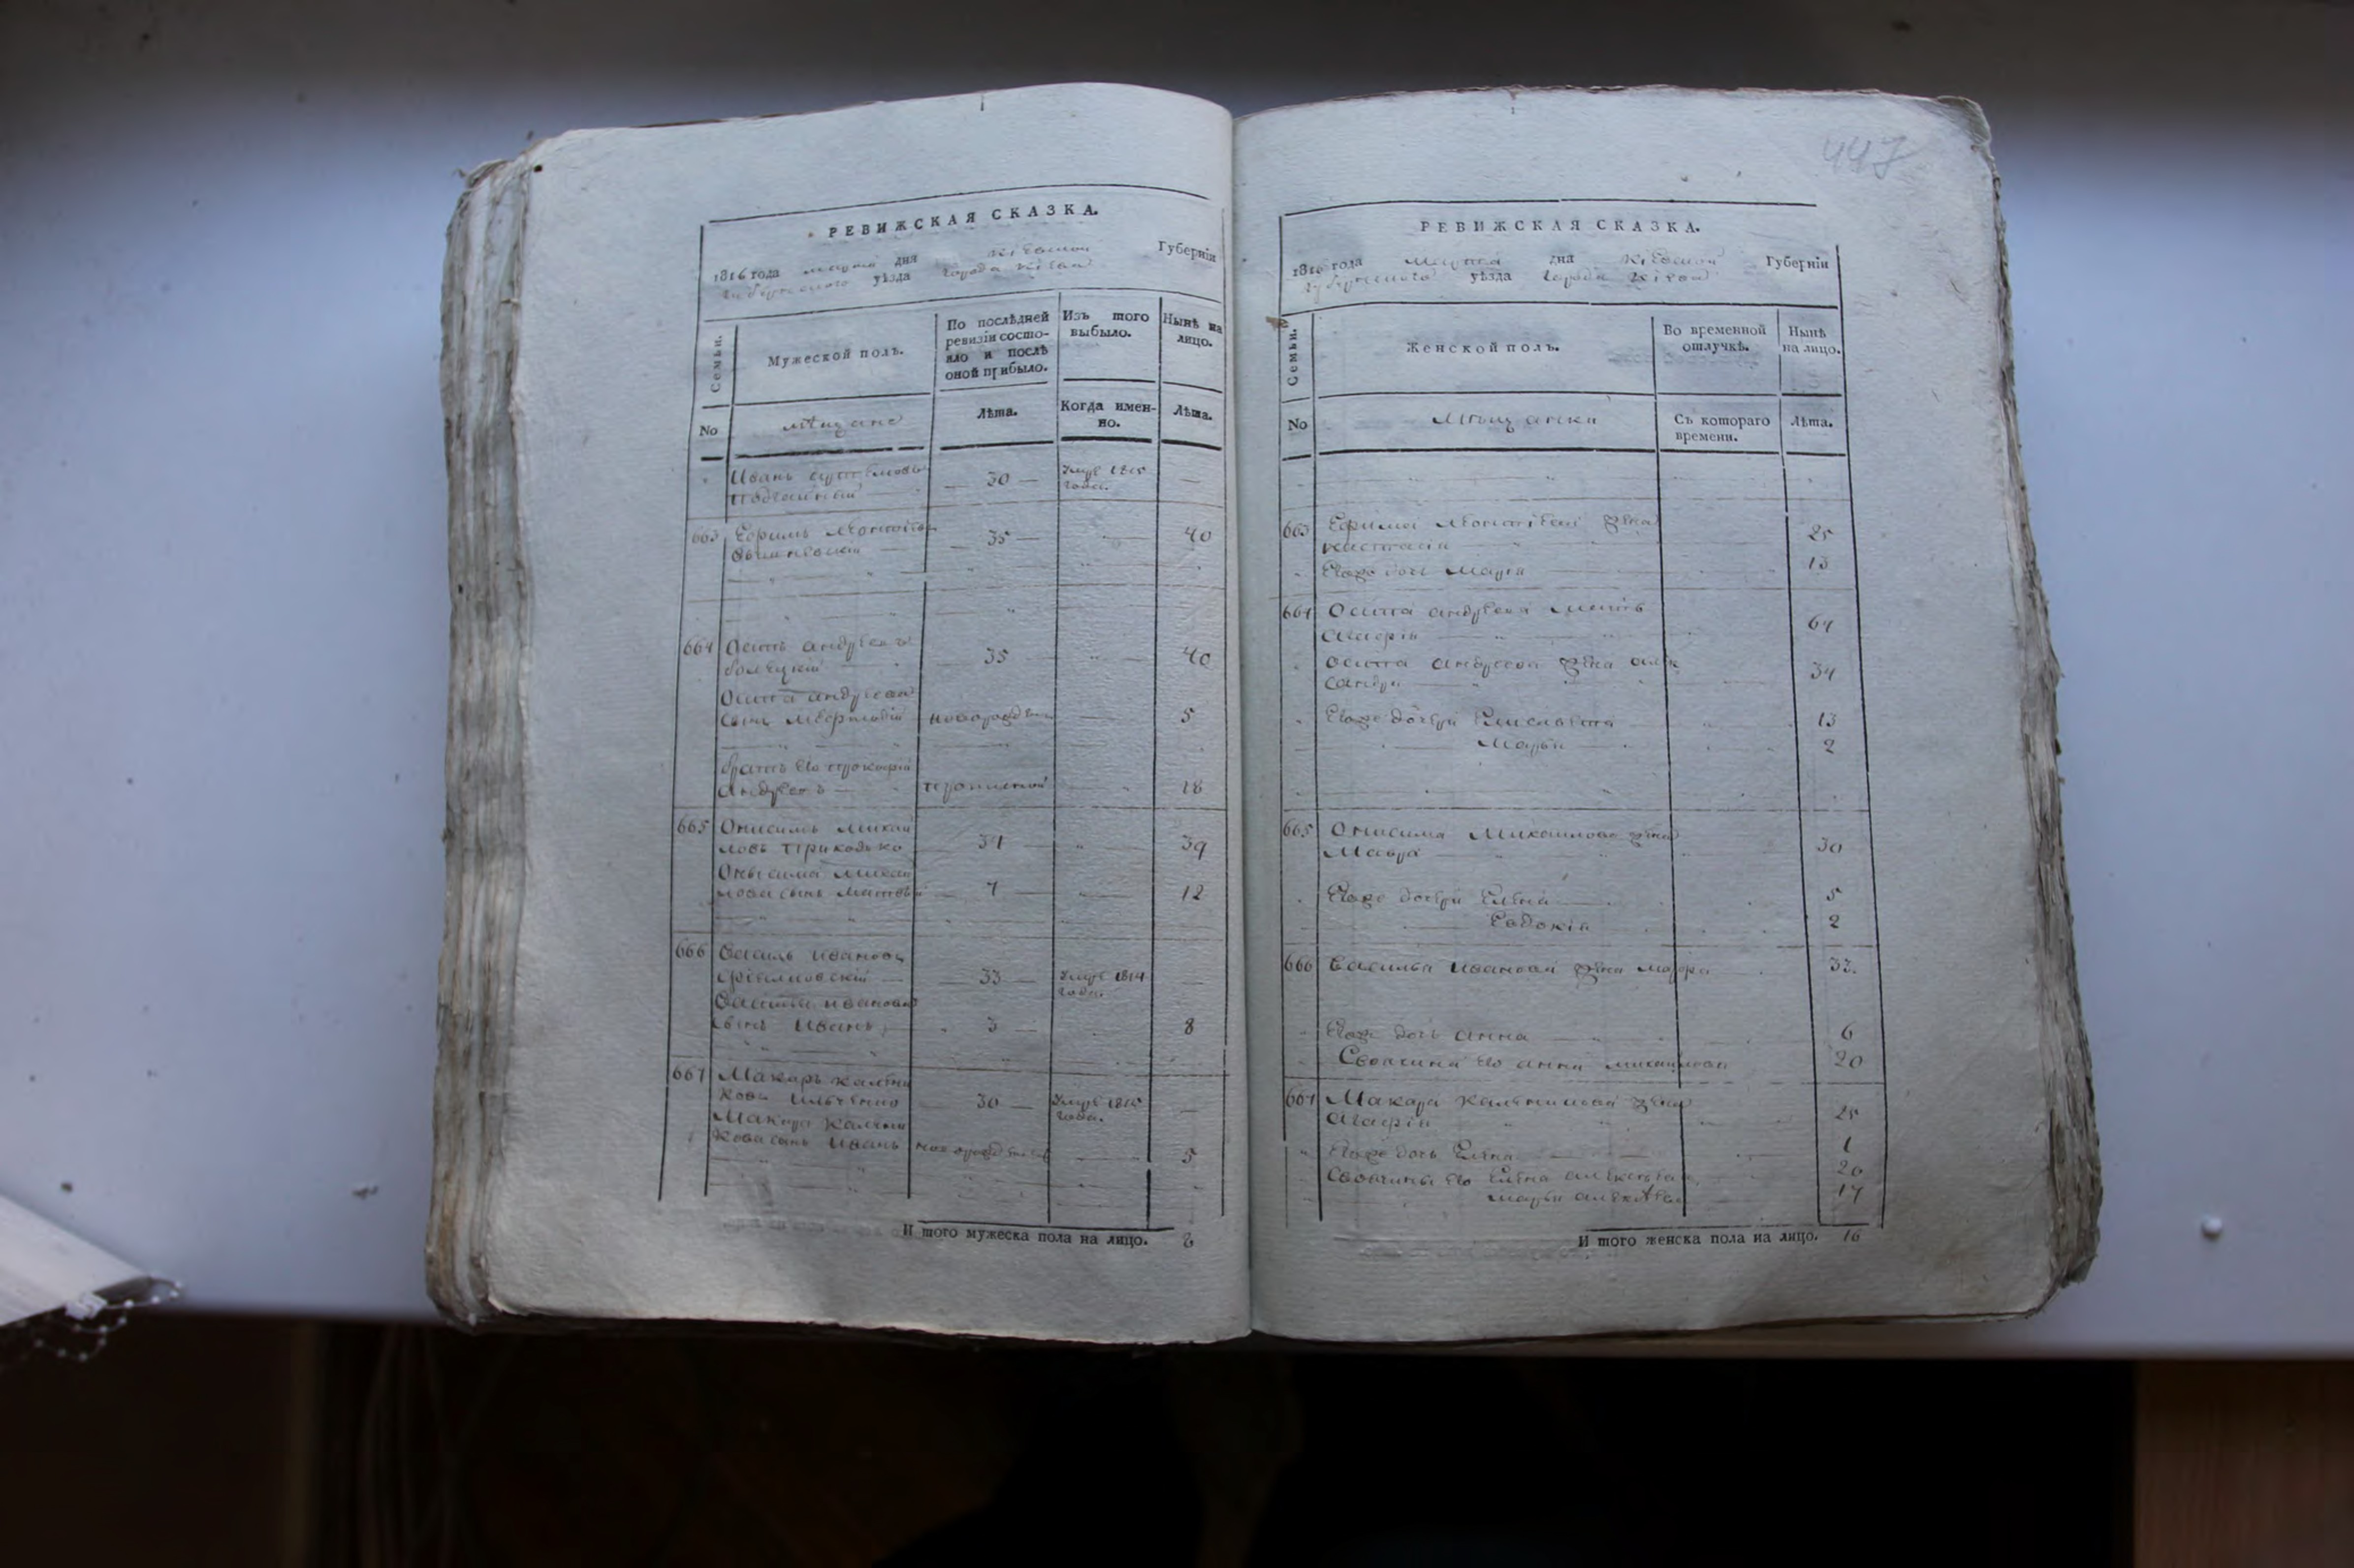 РЕВИЖСКАЯ СКАЗКА.
1816 года марта дня Кіевской Губерніи
уѣзда города Кіева
Семьи.
Мужеской полъ.
По послѣдней ревизіи состояло и послѣ оной прибыло.
Изъ того выбыло.
Нынѣ на лицо.
No
мѣщане
Лѣта.
Когда именно.
Лѣта.
Иванъ 30 Умре 1815
года. —
663 Ефимъ
35 40
664 Осипъ андреевъ
35 40
Осипа андреева
сынъ новорожденъ 5
братъ его прокофій
андреевъ 18
665 Онисимъ михай
ловъ Приходько 34 39
Онисима михай
лова сынъ матвѣй 7 12
666 Василь Ивановъ
33 Умре 1814
года. —
Василья иванова
сынъ Иванъ 3 8
667 Макаръ калени
ковъ Ильченко 30 Умре 1815
года. —
Макара Калени
кова сынъ Иванъ новорожденъ 5
И того мужеска пола на лицо. 8
447
РЕВИЖСКАЯ СКАЗКА.
1816 года Марта дня Кіевской Губерніи
уѣзда города Кіева
Семьи.
Женской полъ.
Во временной отлучкѣ.
Нынѣ на лицо.
No
Мѣщанки
Съ котораго времени.
Лѣта.
663 Ефима жена
настасія 25
Егоже дочь Марія 13
664 Осипа андреева мать
Агафія 64
Осипа андреева жена алек
сандра 34
Егоже дочери Елисавета 13
Марья 2
665 Онисима Михаилова жена
Мавра 30
Егоже дочери Елена 5
Евдокія 2
666 Василья Иванова жена 33.
Егоже дочь анна 6
Своячина его анна михаилова 20
667 Макара Каленикова жена
Агафія 25
Егоже дочь Елена 1
Своячины его Елена алексѣева 20
марья алексѣева 17
И того женска пола на лицо. 16